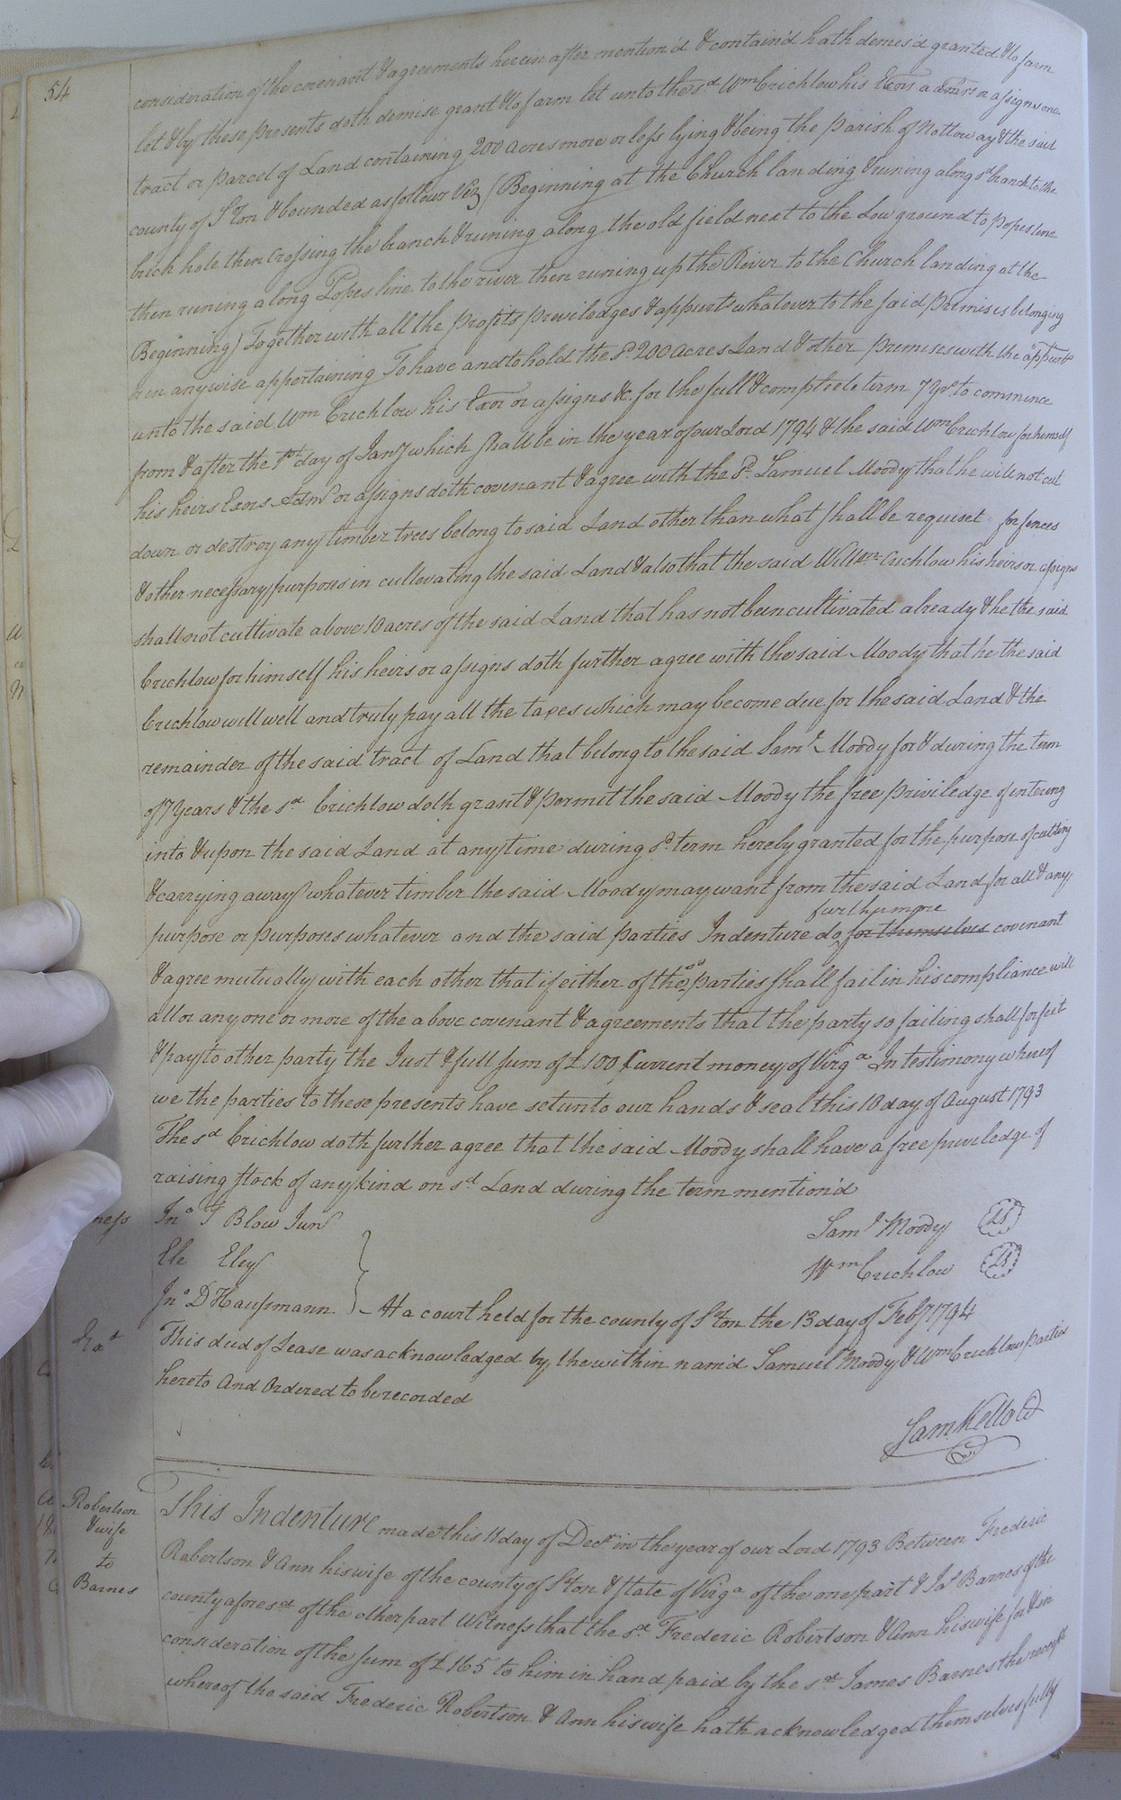 54
consideration of the covenant & agreements herein after mention'd & contain'd hath demis'd granted & to farm
let & by these presents doth demise grant & to farm let unto the sd Wm Crichlow his Exors admrs or assigns one
tract or parcel of Land containing 200 acres more or less lying & being the Parish of Nottoway & the said
county of S'ton & bounded as follows Viz (Beginning at the Church landing & runing along sd branch to the
brick hole then Crossing the branch & runing along the old field next to the Low ground to Popes line
then runing along Popes line to the river then runing up the River to the Church landing at the
Beginning) Together with all the profits priviledges & appurts whatever to the said premises belonging
or in anywise appertaining To have and to hold the sd 200 acres Land & other premises with the appurts
unto the said Wm Crichlow his Exor or assigns &c for the full & compleete tarm 7 yrs to commence
from & after the 1st day of Jany which shall be in the year of our Lord 1794 & the said Wm Crichlow for himself
his heirs Exors Admrs or assigns doth covenant & agree with the sd Samuel Moody that he will not cut
down or destroy any timber trees belong to said Land other than what shall be requiset for fences
& other necessary purposes in cultivating the said Land & also that the said Willm Crichlow his heirs or assigns
shall not cultivate above 10 acres of the said Land that has not been cultivated already & he the said
Crichlow for himself his heirs or assigns doth further agree with the said Moody that he the said
Crichlow will well and truly pay all the taxes which may become due for the said Land & the
remainder of the said tract of Land that belong to the said Saml Moody for & during the term
of 7 years & the sd Crichlow doth grant & permit the said Moody the free priviledge of intering
into & upon the said Land at any time during sd term hereby granted for the purpose of cutting
& carrying away whatever timber the said Moody may want from the said Land for all & any
furthermore
purpose or purposes whatever and the said parties Indenture do for themselves covenant
& agree mutually with each other that if either of the sd parties shall fail in his compliance with
all or any one or more of the above covenant & agreements that the party so failing shall forfeit
& pay to other party the Just & full sum of £100 Current money of Virga In testimony whereof
we the parties to these presents have set unto our hands & seal this 10 day of August 1793
The sd Crichlow doth further agree that the said Moody shall have a free priviledge of
raising stock of any kind on sd Land during the term mention'd
ness Jno T Blow Junr Saml Moody LS
Ele Eley Wm Crichlow LS
Jno D Haussmann At a court held for the county of S'ton the 13 day of Feby 1794
This deed of Lease was acknowledged by the within nam'd Samuel Moody & Wm Crichlow parties
hereto And Ordered to be recorded
Sam Kello Ct
Robertson
& wife
to
Barnes
This Indenture made this 11 day of Decr in the year of our Lord 1793 Between Frederic
Robertson & Ann his wife of the county of S'ton & State of Virga of the one part & Jas Barnes of the
county aforesd of the other part Witness that the sd Frederic Robertson & Ann his wife for & in
consideration of the sum of £165 to him in hand paid by the sd James Barnes the receipt
whereof the said Frederic Robertson & Ann his wife hath acknowledged themselves fully